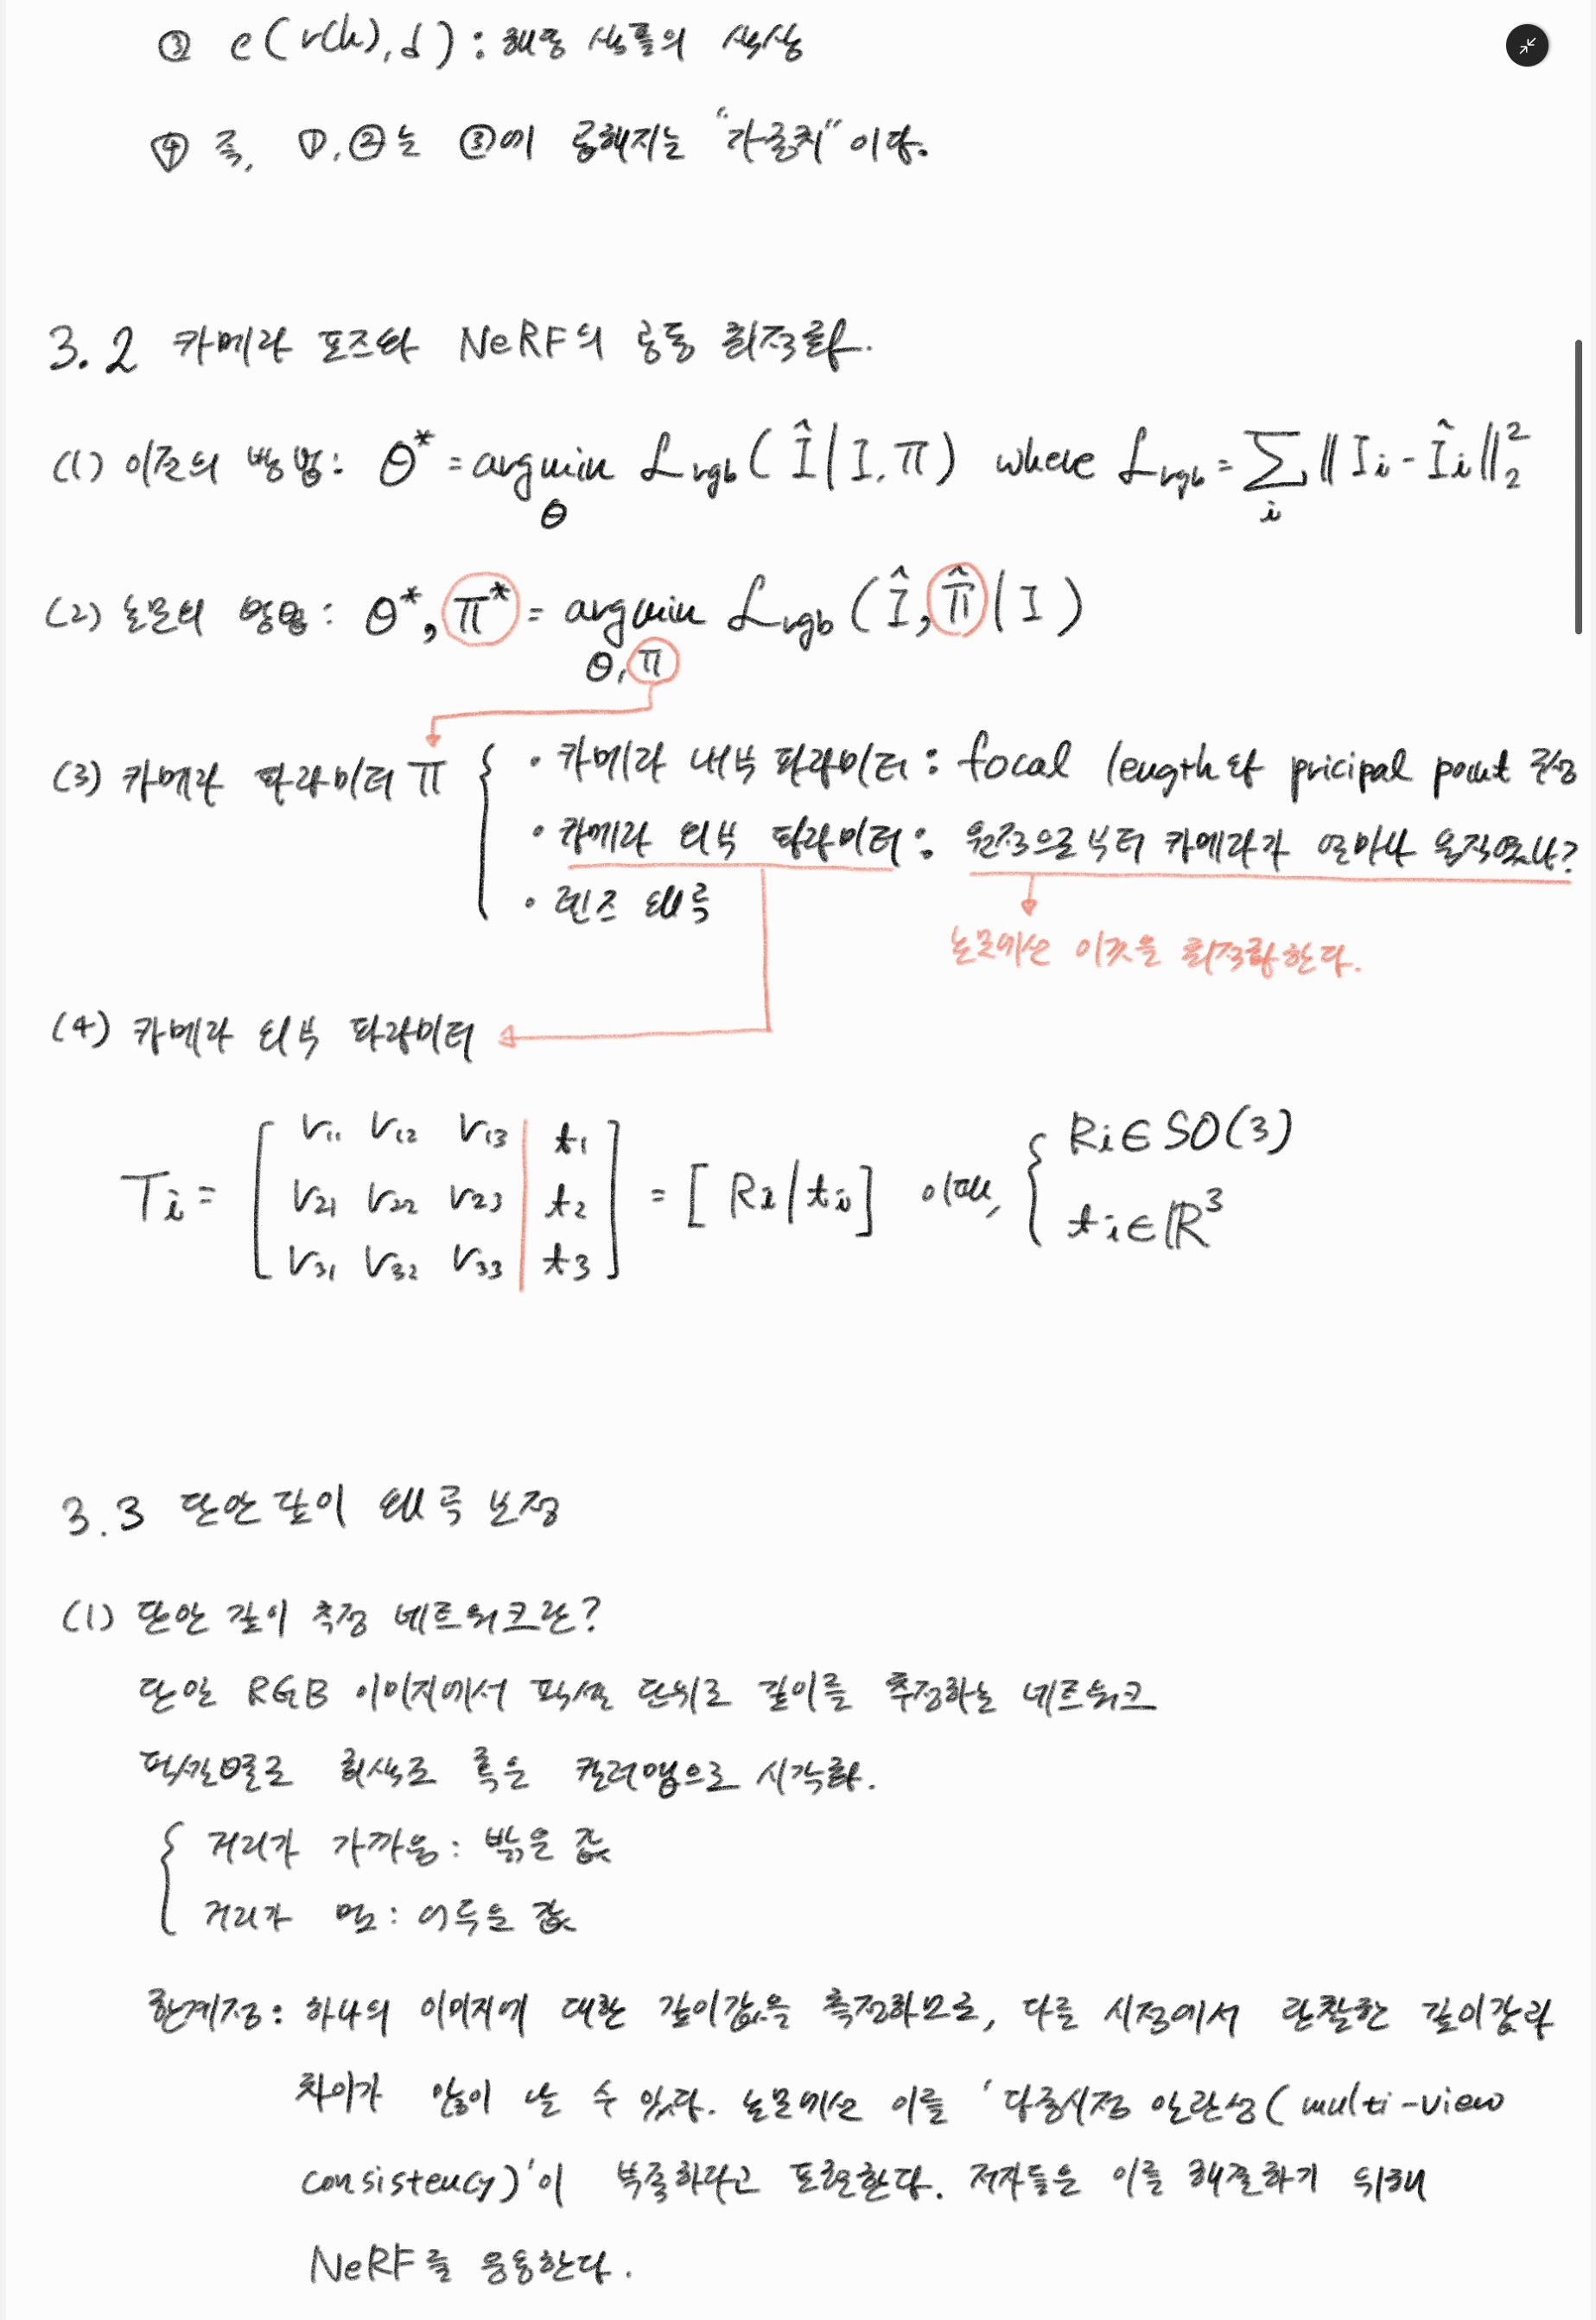 ③ c(r(h), d) : 해당 샘플의 색상
④ 즉, ①, ②는 ③에 곱해지는 "가중치" 이다.
3.2 카메라 포즈와 NeRF의 공동 최적화.
(1) 이전의 방법: Θ* = argmin_Θ L_rgb(Î | I, π) where L_rgb = Σ_i ‖I_i - Î_i‖₂²
(2) 논문의 방법: Θ*, π* = argmin_Θ,π L_rgb(Î, π̂ | I)
(3) 카메라 파라미터 π { · 카메라 내부 파라미터 : focal length와 pricipal point 조정
· 카메라 외부 파라미터 : 원점으로부터 카메라가 얼마나 움직였나?
· 렌즈 왜곡
논문에선 이것을 최적화한다.
(4) 카메라 외부 파라미터
T_i = [ r₁₁ r₁₂ r₁₃ | t₁
r₂₁ r₂₂ r₂₃ | t₂
r₃₁ r₃₂ r₃₃ | t₃ ] = [ R_i | t_i ] 이때, { R_i ∈ SO(3)
t_i ∈ ℝ³
3.3 단안 깊이 왜곡 보정
(1) 단안 깊이 측정 네트워크란?
단일 RGB 이미지에서 픽셀 단위로 깊이를 추정하는 네트워크
픽셀별로 회색조 혹은 컬러맵으로 시각화.
{ 거리가 가까움 : 밝은 값
거리가 멈 : 어두운 값
한계점 : 하나의 이미지에 대한 깊이값을 측정하므로, 다른 시점에서 관찰한 깊이값과
차이가 많이 날 수 있다. 논문에선 이를 '다중시점 일관성(multi-view
consistency)'이 부족하다고 표현한다. 저자들은 이를 해결하기 위해
NeRF를 응용한다.